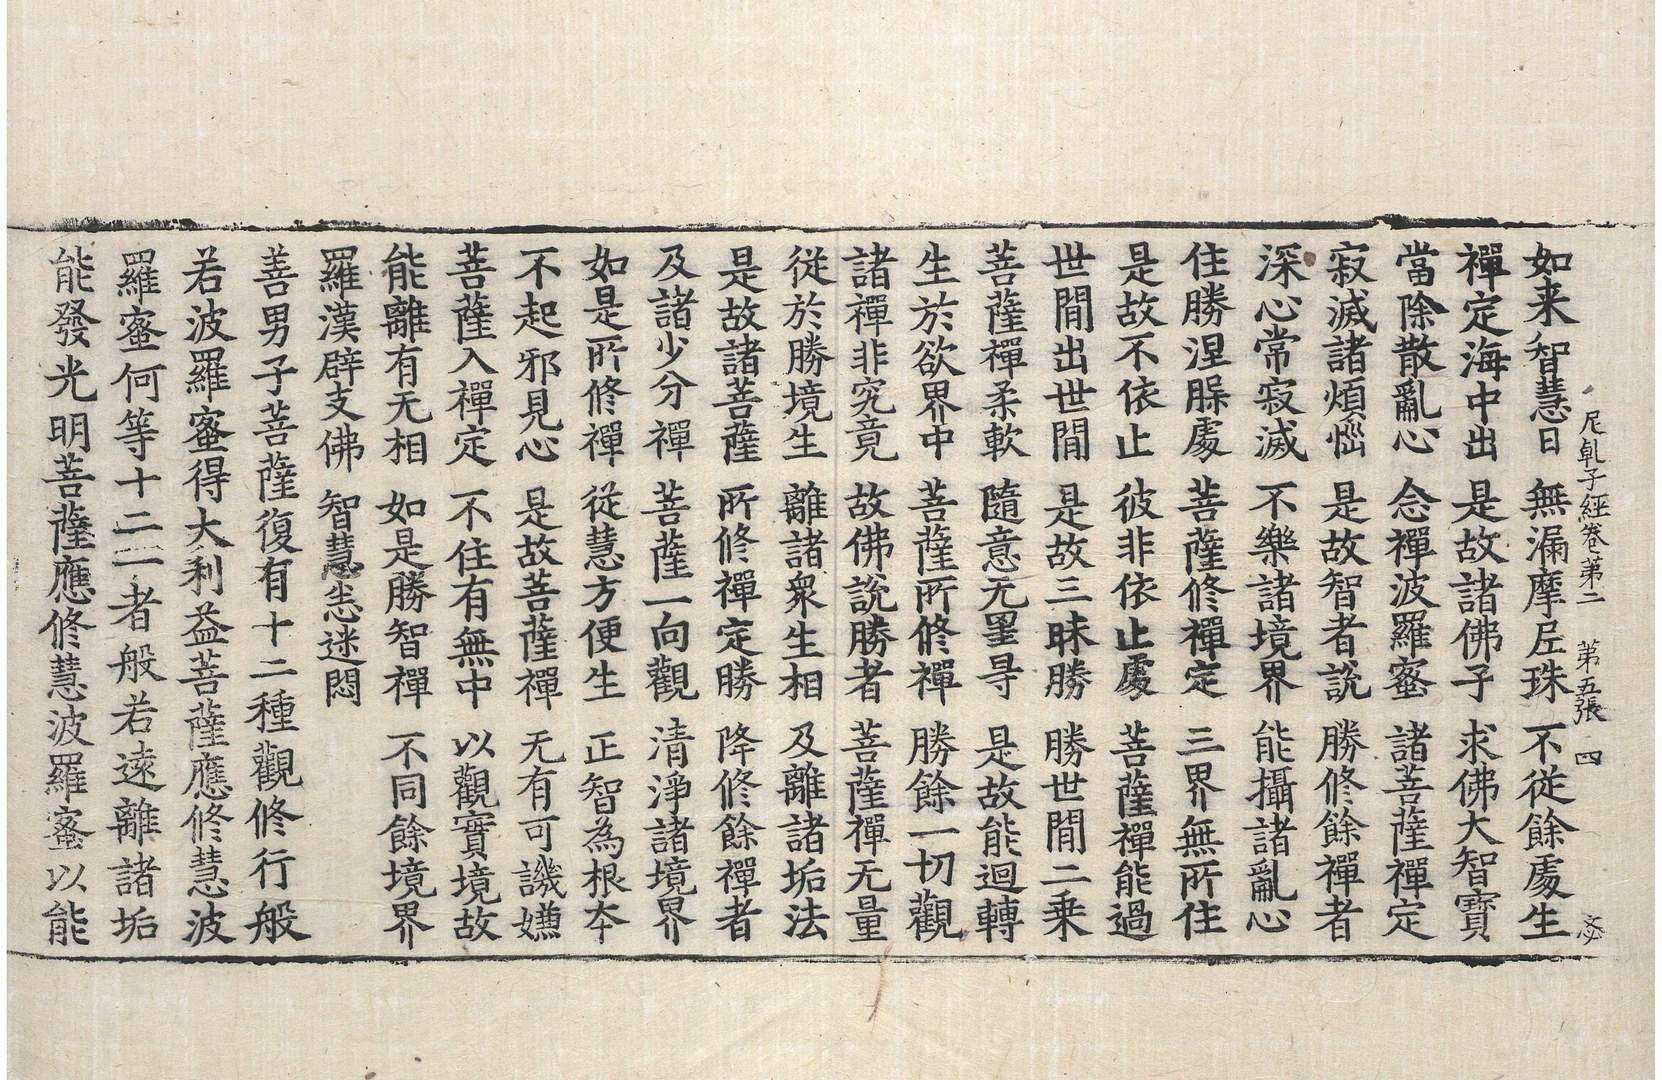 尼乹子經卷第二 第五張 四
如来智慧日 無漏摩尼珠 不從餘處生
禪定海中出 是故諸佛子 求佛大智寶
當除散亂心 念禪波羅蜜 諸菩薩禪定
寂滅諸煩惱 是故智者說 勝修餘禪者
深心常寂滅 不樂諸境界 能攝諸亂心
住勝涅槃處 菩薩修禪定 三界無所住
是故不依止 彼非依止處 菩薩禪能過
世間出世間 是故三昧勝 勝世間二乗
菩薩禪柔軟 隨意无罣导 是故能迴轉
生於欲界中 菩薩所修禪 勝餘一切觀
諸禪非究竟 故佛說勝者 菩薩禪无量
從於勝境生 離諸衆生相 及離諸垢法
是故諸菩薩 所修禪定勝 降修餘禪者
及諸少分禪 菩薩一向觀 清淨諸境界
如是所修禪 從慧方便生 正智為根本
不起邪見心 是故菩薩禪 无有可譏嫌
菩薩入禪定 不住有無中 以觀實境故
能離有无相 如是勝智禪 不同餘境界
羅漢辟支佛 智慧悉迷悶
善男子菩薩復有十二種觀修行般
若波羅蜜得大利益菩薩應修慧波
羅蜜何等十二一者般若遠離諸垢
能發光明菩薩應修慧波羅蜜以能